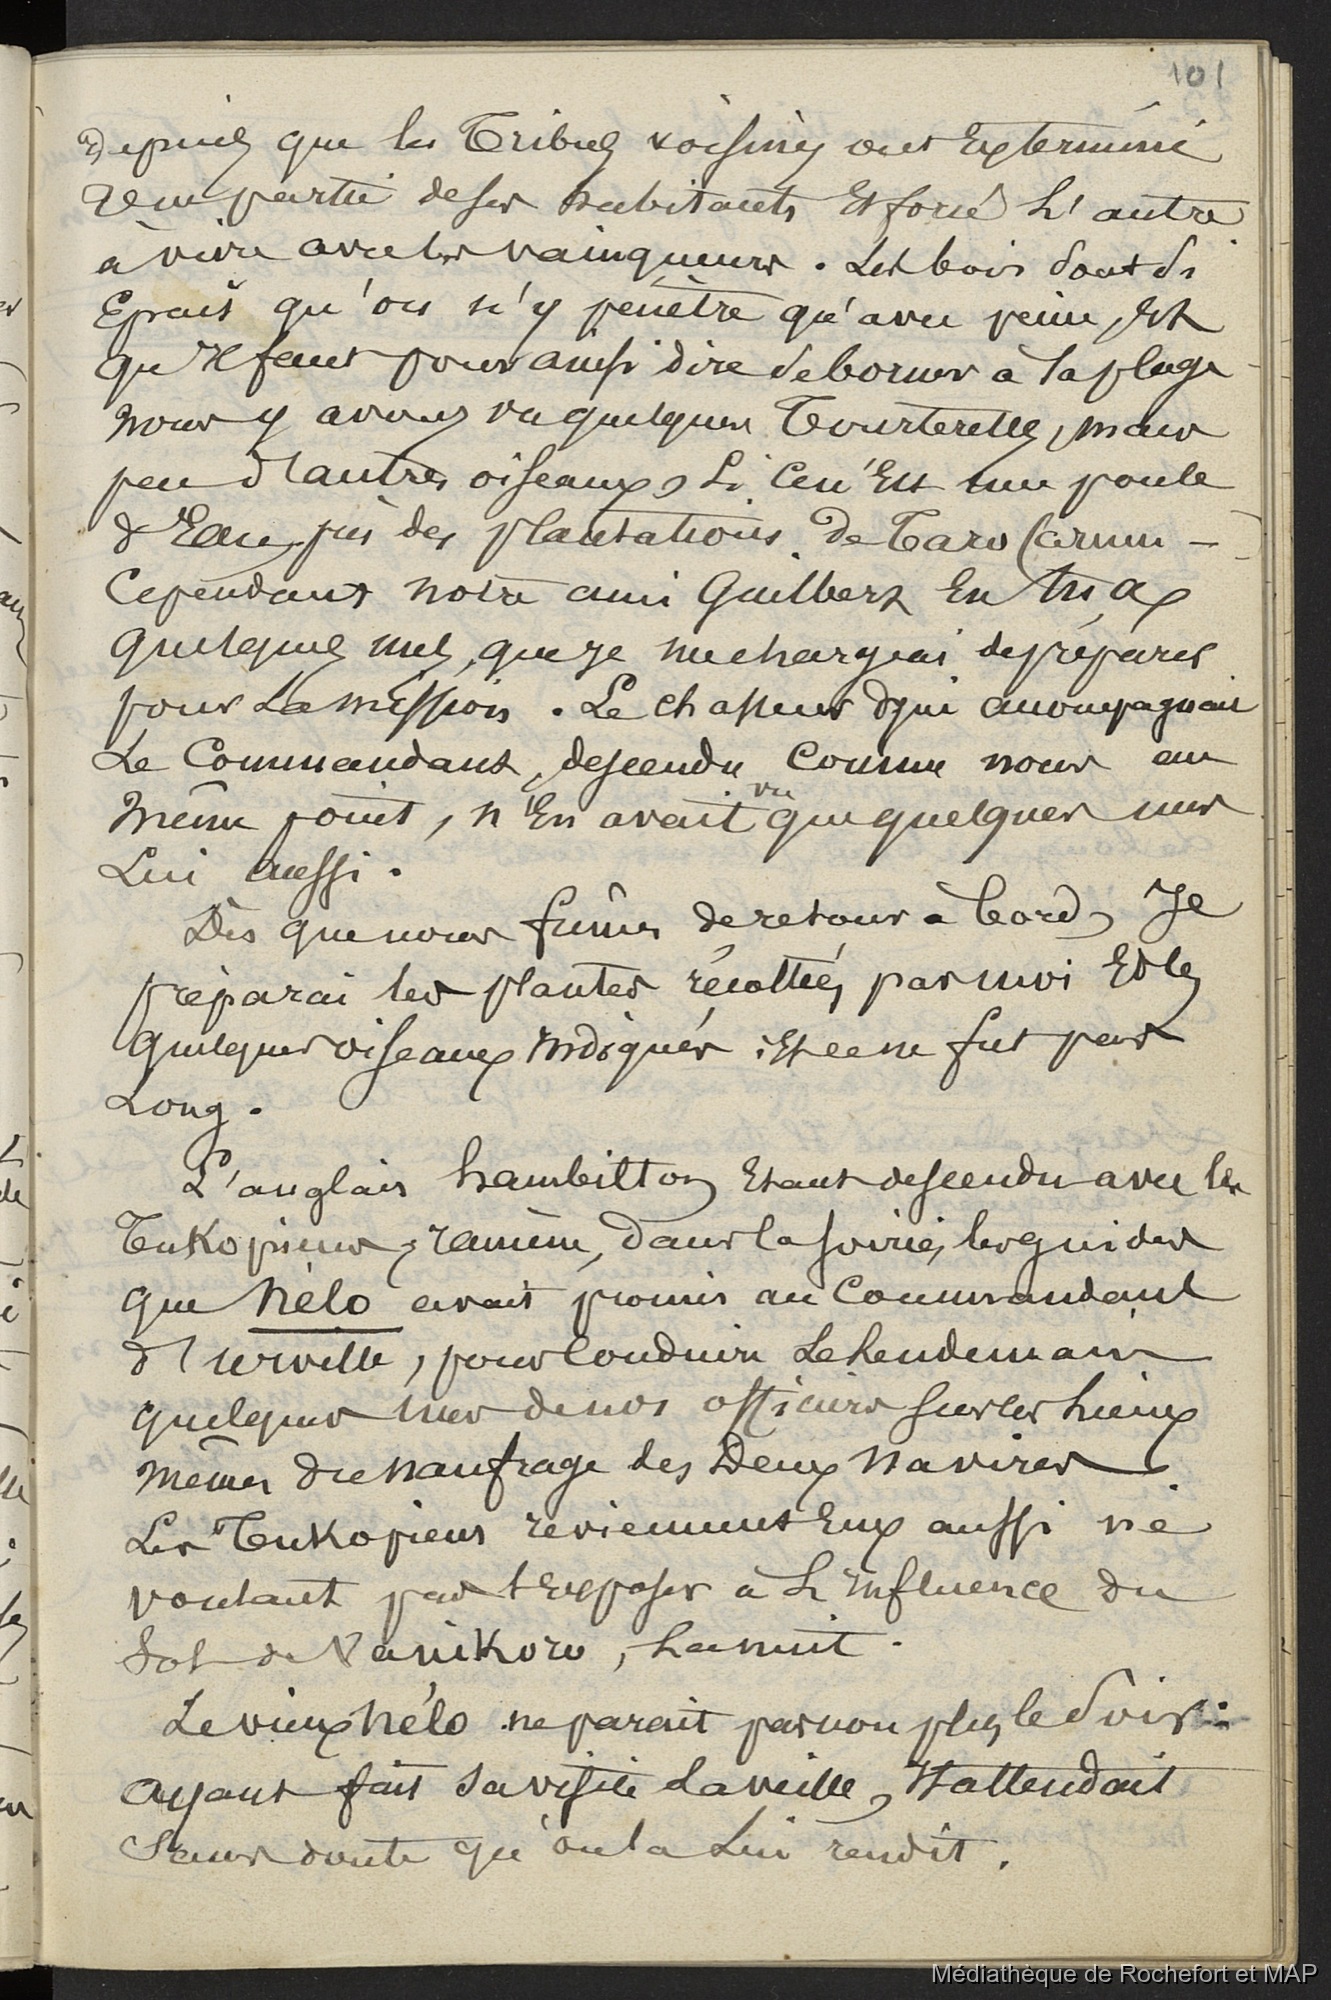 101
Depuis que les Tribus voisines ont Exterminé
une partie de ses habitants Et forcé L'autre
à vivre avec les vainqueurs. Les bois sont si
Epais qu'on n'y pénètre qu'avec peine, Et
qu'Il faut pour ainsi dire se borner à la plage
nous y avons vu quelques Tourterelles, mais
peu d'autres oiseaux, Si ce n'Est une poule
d'Eau, près des plantations de Taro (arum –
Cependant notre ami Guilbert En tua
quelques unes, que je me chargeai de préparer
pour La mission. Le chasseur qui accompagnait
Le Commandant, descendu comme nous au
même point, n'En avait vu que quelques unes
Lui aussi.
Dès que nous fûmes de retour à bord, Je
préparai les plantes récoltées par moi Et les
quelques oiseaux Indiqués ; Et ce ne fut pas
Long.
L'anglais hambilton Etant descendu avec les
Tukopiens, ramène, dans la soirée, les guides
que Nélo avait promis au Commandant
d'Urville, pour Conduire Le Lendemain
quelques unes de nos officiers sur les Lieux
mêmes du naufrage des Deux Navires
Les Tukopiens reviennent Eux aussi ne
voulant pas s'Exposer à L'Influence du
Sol de Vanikoro, La nuit.
Le vieux Nélo ne paraît pas non plus le Soir :
ayant fait sa visite la veille, Il attendait
Sans doute qu'on la Lui rendît.
Médiathèque de Rochefort et MAP